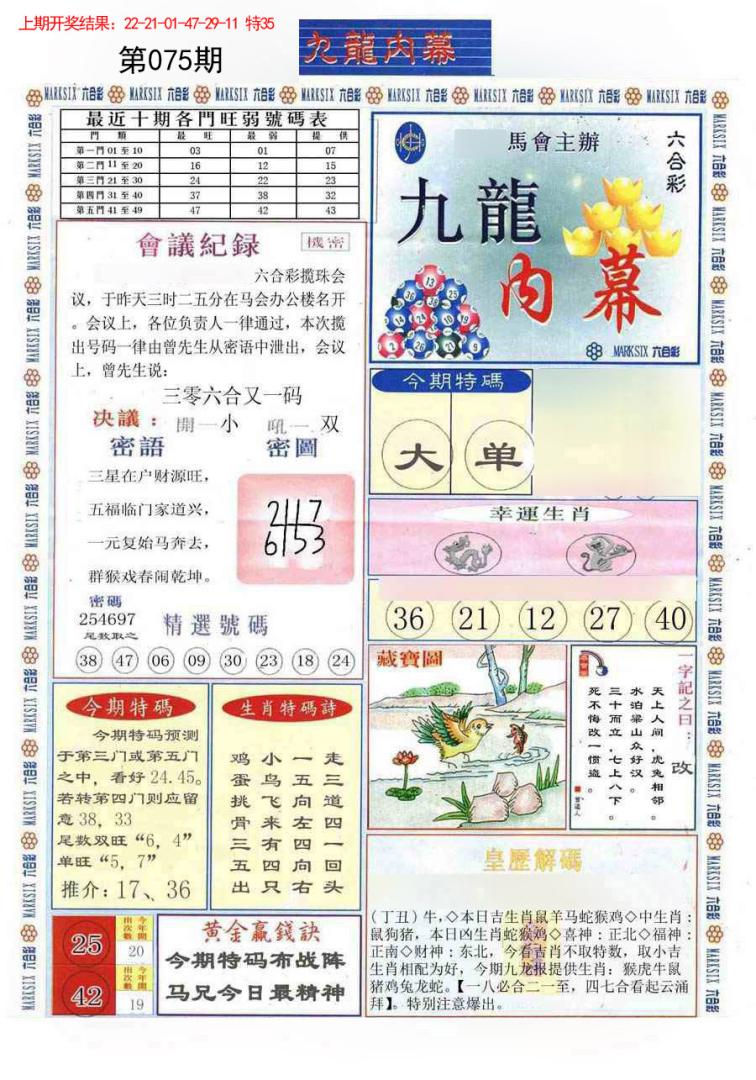 上期开奖结果：22-21-01-47-29-11 特35
第075期
九龍内幕
MARKSIX 六合彩
最近十期各門旺弱號碼表
門 類 最 旺 最 弱 提 供
第一門 01 至 10 03 01 07
第二門 11 至 20 16 12 15
第三門 21 至 30 24 22 23
第四門 31 至 40 37 38 32
第五門 41 至 49 47 42 43
馬會主辦
六合彩
九龍
内幕
MARKSIX 六合彩
會議紀録
機密
六合彩揽珠会
议，于昨天三时二五分在马会办公楼名开
。会议上，各位负责人一律通过，本次揽
出号码一律由曾先生从密语中泄出，会议
上，曾先生说：
三零六合又一码
决議：開一小 吼一双
密語
密圖
三星在户财源旺，
五福临门家道兴，
一元复始马奔去，
群猴戏春闹乾坤。
2417
6153
密碼
254697
尾数取之
精選號碼
38 47 06 09 30 23 18 24
今期特碼
大 单
幸運生肖
36 21 12 27 40
藏寶圖
一字記之曰：改
天上人间，虎兔相邻。
水泊梁山众好汉。
三十而立，七上八下。
死不悔改一惯盗。
曾道人
今期特碼
今期特码预测
于第三门或第五门
之中，看好 24.45。
若转第四门则应留
意 38，33
尾数双旺“6，4”
单旺“5，7”
推介：17、36
生肖特碼詩
鸡 小 一 走
蛋 鸟 五 三
挑 飞 向 道
骨 来 左 四
三 有 四 一
五 四 向 回
出 只 右 头
25 今年開出次數 20
42 今年開出次數 19
黄金赢錢訣
今期特码布战阵
马兄今日最精神
皇歷解碼
（丁丑）牛，◇本日吉生肖鼠羊马蛇猴鸡◇中生肖：
鼠狗猪，本日凶生肖蛇猴鸡◇喜神：正北◇福神：
正南◇财神：东北，今看吉肖不取特数，取小吉
生肖相配为好，今期九龙报提供生肖：猴虎牛鼠
猪鸡兔龙蛇。【一八必合二一至，四七合看起云涌
拜】。特别注意爆出。